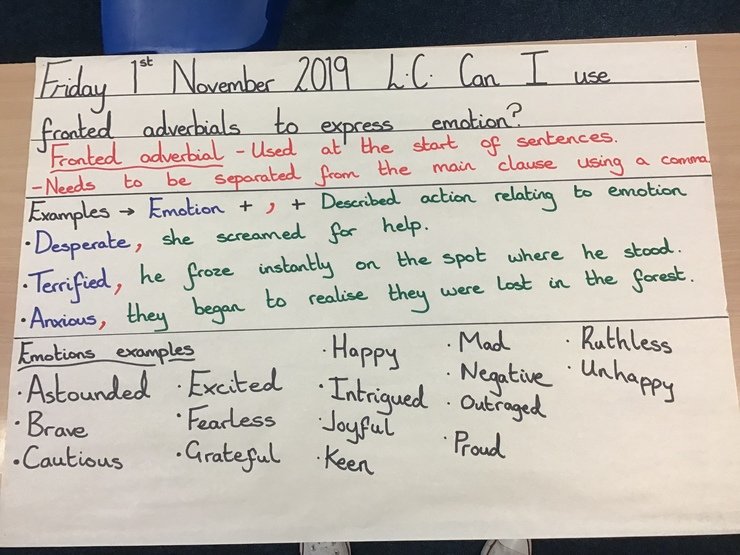 Friday 1st November 2019 L.C. Can I use
fronted adverbials to express emotion?
Fronted adverbial - Used at the start of sentences.
- Needs to be separated from the main clause using a comma
Examples → Emotion + , + Described action relating to emotion
· Desperate, she screamed for help.
· Terrified, he froze instantly on the spot where he stood.
· Anxious, they began to realise they were lost in the forest.
Emotions examples
· Astounded
· Brave
· Cautious
· Excited
· Fearless
· Grateful
· Happy
· Intrigued
· Joyful
· Keen
· Mad
· Negative
· Outraged
· Proud
· Ruthless
· Unhappy